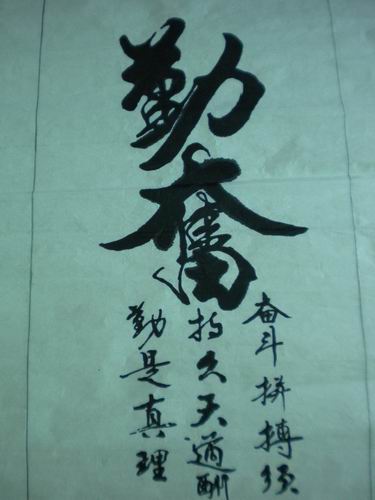 勤奮
奋斗拼搏须
持久天道酬
勤是真理